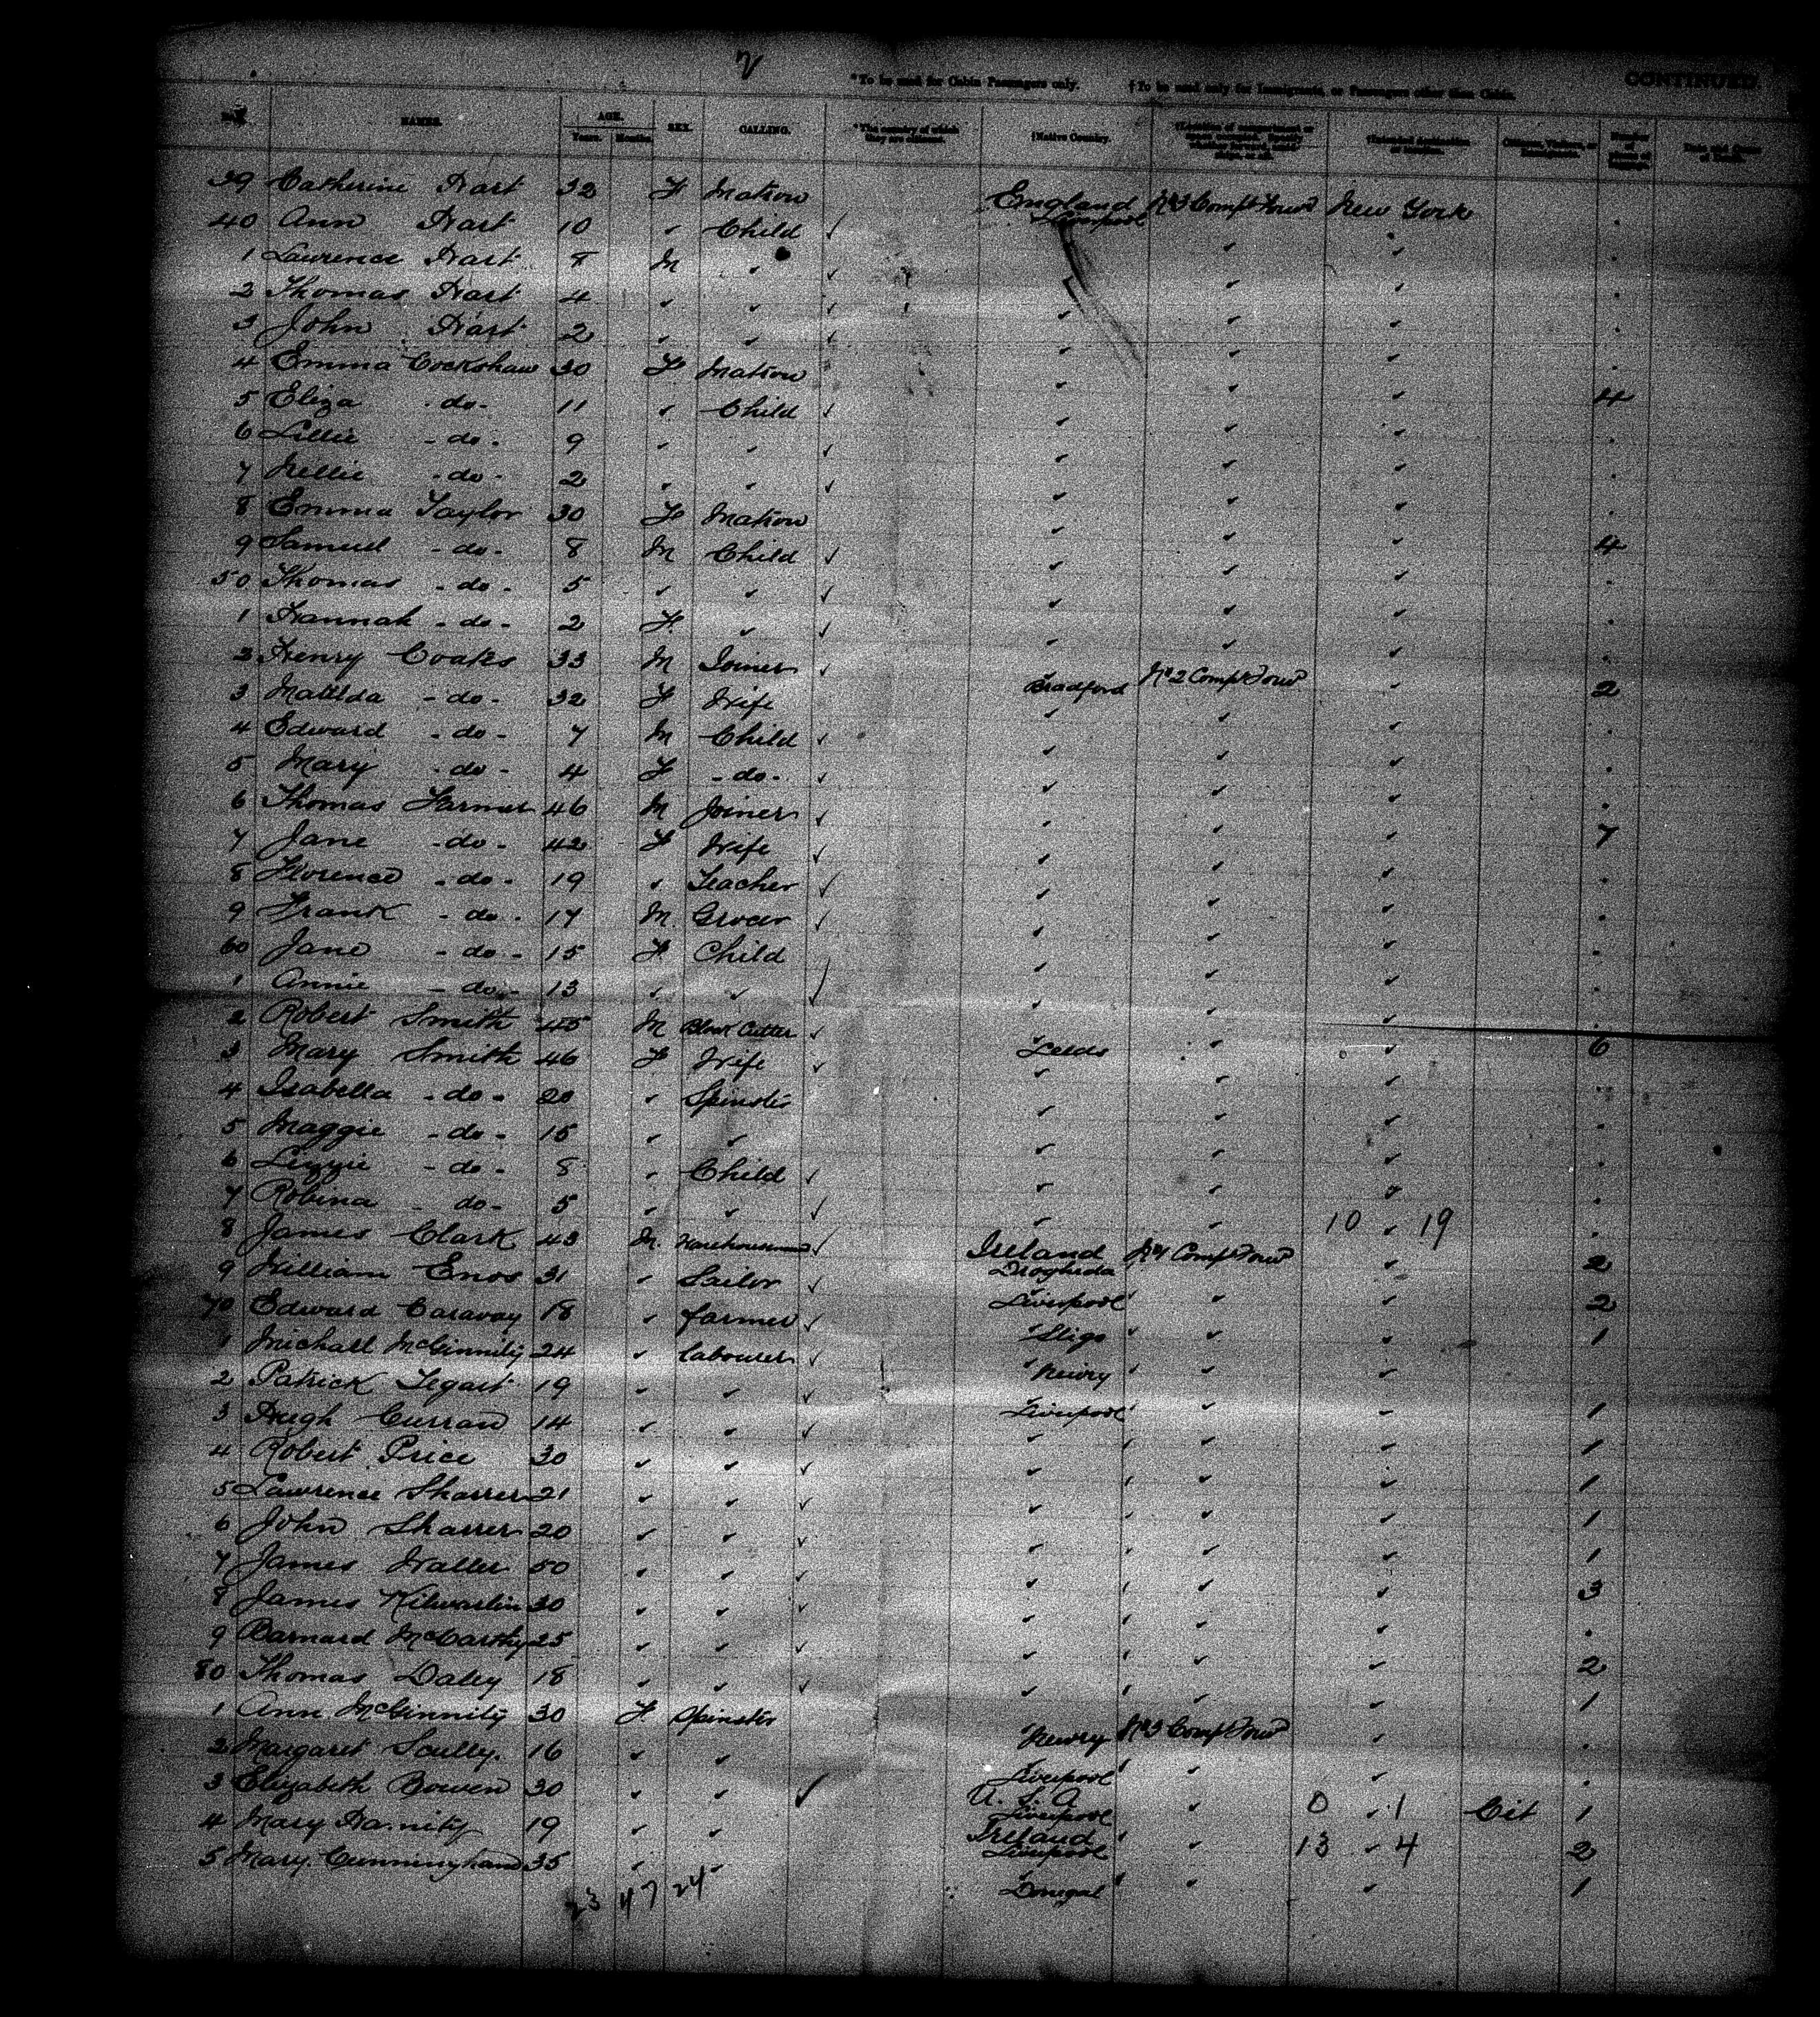 2
*To be used for Cabin Passengers only. †To be used only for Immigrants, or Passengers other than Cabin. CONTINUED.
NAMES. AGE. Years. Months. SEX. CALLING. *The country of which they are citizens. †Native Country. †Intended destination or location. Citizens, Visitors, or Immigrants. Number of pieces of Date and Cause of Death.
39 Catherine Hart 32 F Matron England Liverpool No 3 Compt Forwd New York
40 Ann Hart 10 " Child ✓ " " "
1 Lawrence Hart 8 M " ✓ " " "
2 Thomas Hart 4 " " ✓ " " "
3 John Hart 2 " " ✓ " " "
4 Emma Cockshaw 30 F Matron " " " 4
5 Eliza -do- 11 " Child ✓ " " "
6 Lillie -do- 9 " " ✓ " " "
7 Nellie -do- 2 " " ✓ " " "
8 Emma Taylor 30 F Matron " " " 4
9 Samuel -do- 8 M Child ✓ " " "
50 Thomas -do- 5 " " ✓ " " "
1 Hannah -do- 2 F " ✓ " " "
2 Henry Coates 33 M Joiner ✓ Bradford No 2 Compt Forwd " 2
3 Matilda -do- 32 F Wife " " "
4 Edward -do- 7 M Child ✓ " " "
5 Mary -do- 4 F -do- ✓ " " "
6 Thomas Farmer 46 M Joiner ✓ " " " 7
7 Jane -do- 42 F Wife ✓ " " "
8 Florence -do- 19 " Teacher ✓ " " "
9 Frank -do- 17 M Grocer ✓ " " "
60 Jane -do- 15 F Child " " "
1 Annie -do- 13 " " ✓ " " "
2 Robert Smith 45 M Block Cutter ✓ Leeds " " 6
3 Mary Smith 46 F Wife ✓ " " "
4 Isabella -do- 20 " Spinster " " "
5 Maggie -do- 15 " " " " "
6 Lizzie -do- 8 " Child ✓ " " "
7 Robina -do- 5 " " ✓ " " 10 " 19
8 James Clark 43 M Warehouseman ✓ Ireland Drogheda No 1 Compt Forwd " 2
9 William Enos 31 " Sailor ✓ Liverpool " " 2
70 Edward Caravay 18 " farmer ✓ Sligo " " 1
1 Michael McGinnity 24 " labourer ✓ Newry " "
2 Patrick Tegart 19 " " ✓ Liverpool " " 1
3 Hugh Curran 14 " " ✓ " " " 1
4 Robert Price 30 " " ✓ " " " 1
5 Lawrence Sharrer 21 " " ✓ " " " 1
6 John Sharrer 20 " " ✓ " " " 1
7 James Waller 50 " " ✓ " " " 3
8 James 30 " " ✓ " " "
9 Barnard McCarthy 25 " " ✓ " " " 2
80 Thomas Daley 18 " " ✓ " " " 1
1 Ann McGinnity 30 F Spinster Newry No 3 Compt Forwd "
2 Margaret Scully. 16 " " Liverpool " "
3 Elizabeth Bowen 30 " " ✓ U. S. A Liverpool " 0 " 1 Cit 1
4 Mary 19 " " Ireland Liverpool " 13 " 4 2
5 Mary Cunningham 35 " " Donegal " " 1
23 47 24